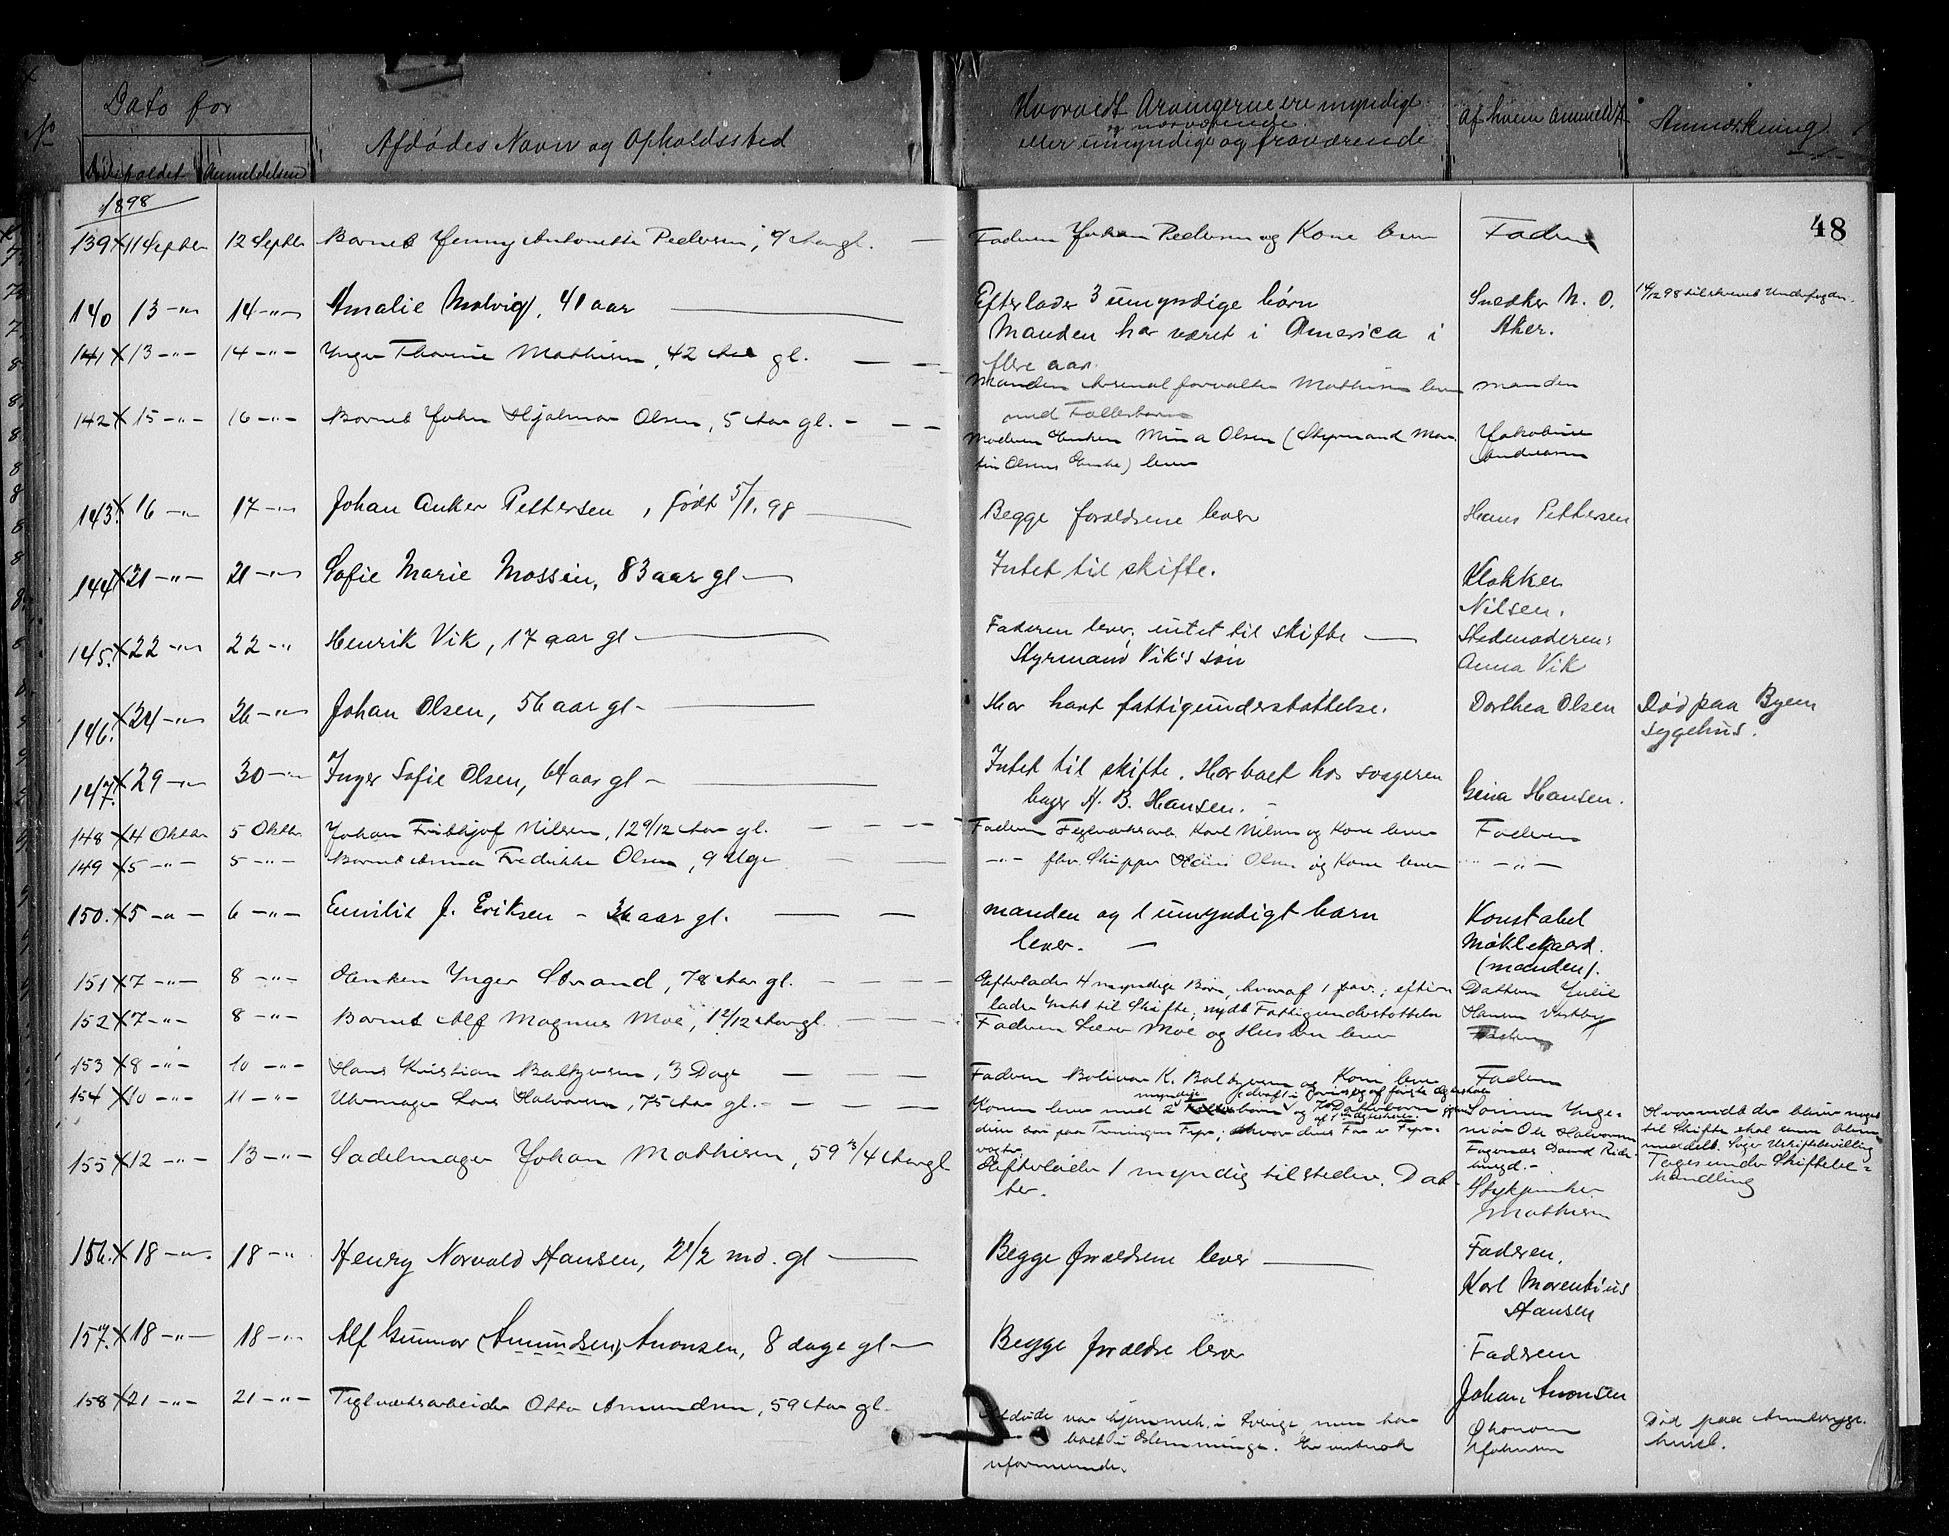 Nº
Dato for
Dødsfaldet
Anmeldelsen
Afdødes Navn og Opholdssted
Hvorvidt Arvingerne ere myndige
og nærværende
eller umyndige og fraværende
af hvem anmeldt
Anmærkning
48
1898
139 X 11 Septbr 12 Septbr Barnet Jenny Antonette Pedersen, Aar gl. — Faderen Johan Pedersen og Kone lever Faderen
140 13 -"- 14 -"- Amalie Molvig, 41 aar — Efterlader 3 umyndige børn Snedker N. O.
Manden har været i America i Aker.
flere aar.
141 X 13 -"- 14 -"- Inger Thorine Mathisen, 42 Aar gl. — —
Manden Arsenalforvalter Mathisen lever Manden
med Fællesbørn
142 X 15 -"- 16 -"- Barnet John Hjalmar Olsen, 5 Aar gl. - — —
Moderen Enken Mina Olsen (Styrmand Mar- Jakobine
tin Olsens Enke) lever Andersen
143. X 16 -"- 17 -"- Johan Anker Pettersen, født 5/1 98 — Begge forældrene lever Hans Pettersen
144 X 21 -"- 21 -"- Sofie Marie Mossin, 83 aar gl — Intet til skifte. Klokker
Nilsen.
145. X 22 -"- 22 -"- Henrik Vik, 17 aar gl — Faderen lever, intet til skifte — Stedmoderen:
Styrmand Vik's søn Anna Vik
146. X 24 -"- 26 -"- Johan Olsen, 56 aar gl — Har havt fattigunderstøttelse. Dorthea Olsen Død paa Byens
Sygehus.
147. X 29 -"- 30 -"- Inger Sofie Olsen, 64 aar gl — Intet til skifte. Har boet hos svogeren
bager H. B. Hansen. - Gina Hansen.
148 X 4 Oktbr 5 Oktbr. Johan Fridthjof Nilsen, 12 9/12 Aar gl. — — — Faderen Teglværksarb. Karl Nilsen og Kone lever Faderen
149 X 5 -"- 5 -"- Barnet Anna Fredrikke Olsen, 9 Uge — — -"- fhv. Skipper Hans Olsen og Kone lever -"-
150. X 5 -"- 6 -"- Emilie J. Eriksen - 36 aar gl. — — manden og 1 umyndigt barn Konstabel
lever. — Møklegaard.
(manden).
151 X 7 -"- 8 -"- Enken Inger Strand, 78 Aar gl. — — — — Efterlader 4 myndige Børn, hvoraf 1 frav.; efter- Datteren Julie
lader Intet til Skifte; nydt Fattigunderstøttelse Hansen Vestby
152 X 7 -"- 8 -"- Barnet Alf Magnus Moe, 1 2/12 Aar gl. — — — Faderen Lærer Moe og Hustru lever Faderen
153 X 8 -"- 10 -"- Hans Kristian Baltzersen, 3 Dage — — — Faderen Bolivar K. Baltzersen og Kone lever Faderen
154 X 10 -"- 11 -"- Uhrmager Lars Halvorsen, 75 Aar gl. - — — —
Konen lever med 2 myndige Sønnen Inge-
niør Ole Halvorsen
155 X 12 -"- 13 -"- Sadelmager Johan Mathisen, 59 3/4 Aar gl
Efterlader 1 myndig tilstedev. Dat-
ter. Stykjunker
Mathisen
Tages under Skiftebe-
handling
156. X 18 -"- 18 -"- Henry Norvald Hansen, 2 1/2 md. gl — Begge forældrene lever — Faderen,
Karl Morentius
Hansen
157. X 18 -"- 18 -"- Alf Gunnar (Amundsen) Aronsen, 8 dage gl — Begge forældre lever Faderen
Johan Aronsen
158 X 21 -"- 21 -"- Teglværksarbeider Otto Amundsen, 59 Aar gl.
Afdøde var hjemmeh. i Sverige, men har Økonom
boet i Glemminge. Johansen
uformuende.
Død paa Amtssyge-
huset.